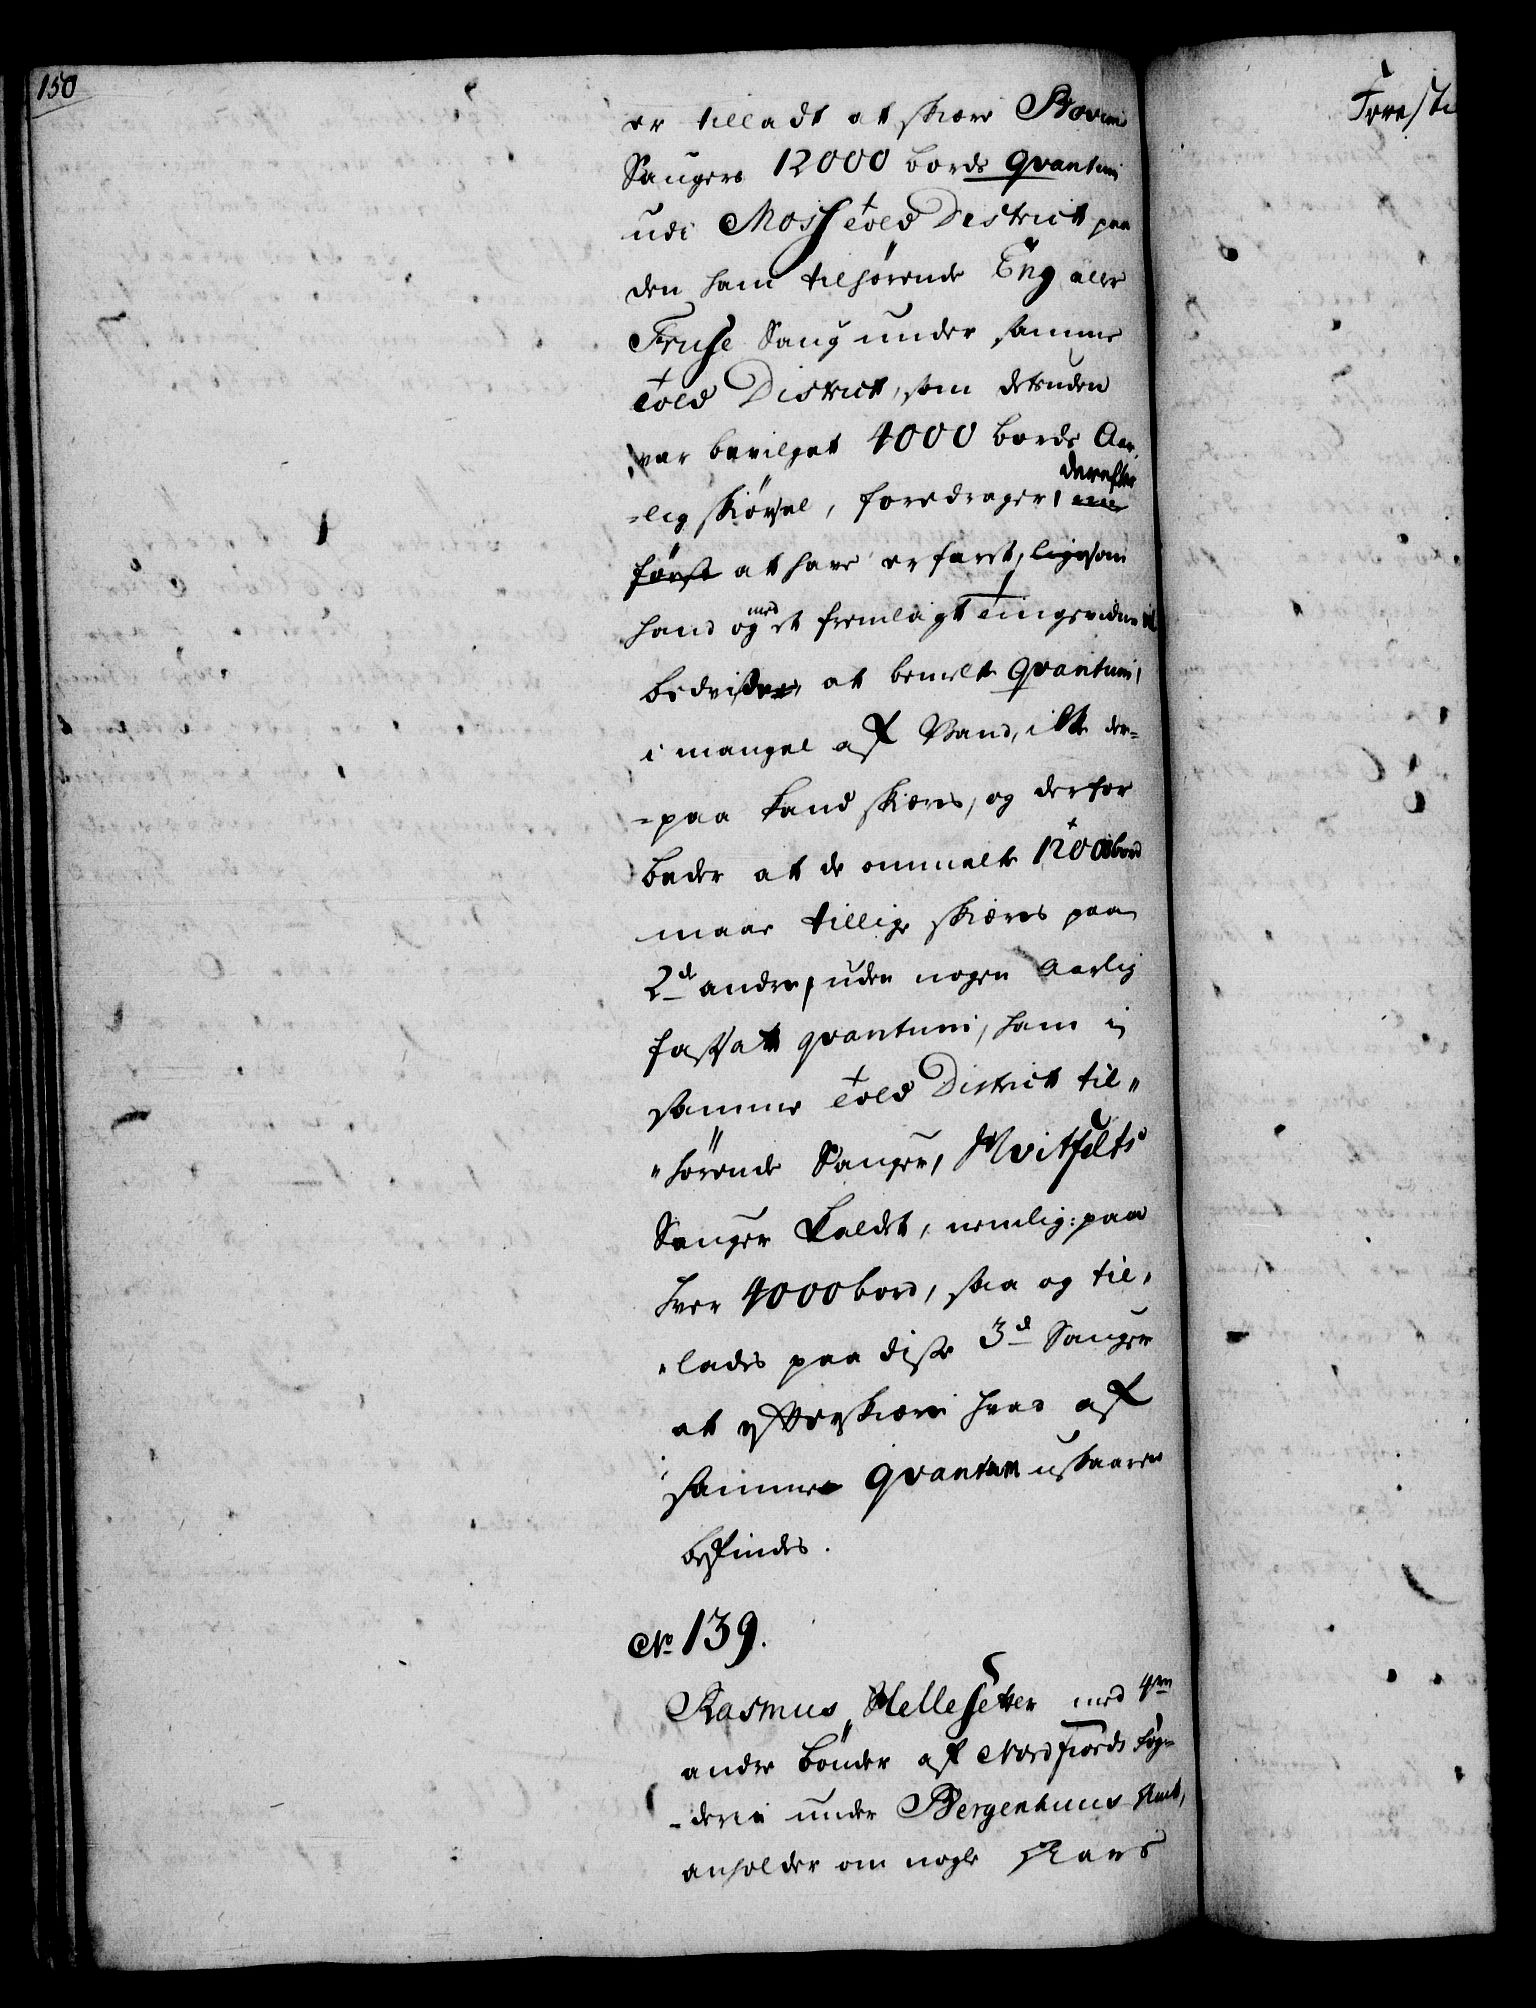 150
er tilladt at skiære Stovnr
Saugers 12000 bords Qvantum
udi Moss Told District paa
den ham tilhørende Eng eller
Fruse Saug under samme
Told District, som desuden
var bevilget 4000 bords Aar-
=lig skiørsel, foredrager, derefter
først at have erfaret, ligesom
hand og med et fremlagt Tingsvidne vil
bedviser, at bemelte Qvantum,
i mangel af Vand, ikke der=
=paa kand skiæres, og derfor
beder at de ommelte 12000 bord
maae tillige skiæres paa
2de andre, uden nogen Aarlig
fastsatt qvantum, ham i
samme Told District til"
"hørende Sauger, Hvitfelts
Sauger kaldet, nemlig: paa
hver 4000 bord, saa og til"
"lades paa disse 3de Sauger
at efterskiære hvad af
samme Qvantum uskaaren
befindes.
No 139.
Rasmus Hellesetter med 4re
andre bønder af Nordfiords Fog=
=derie under Bergenhuus Amt,
anholder om nogle Aars
Foresti